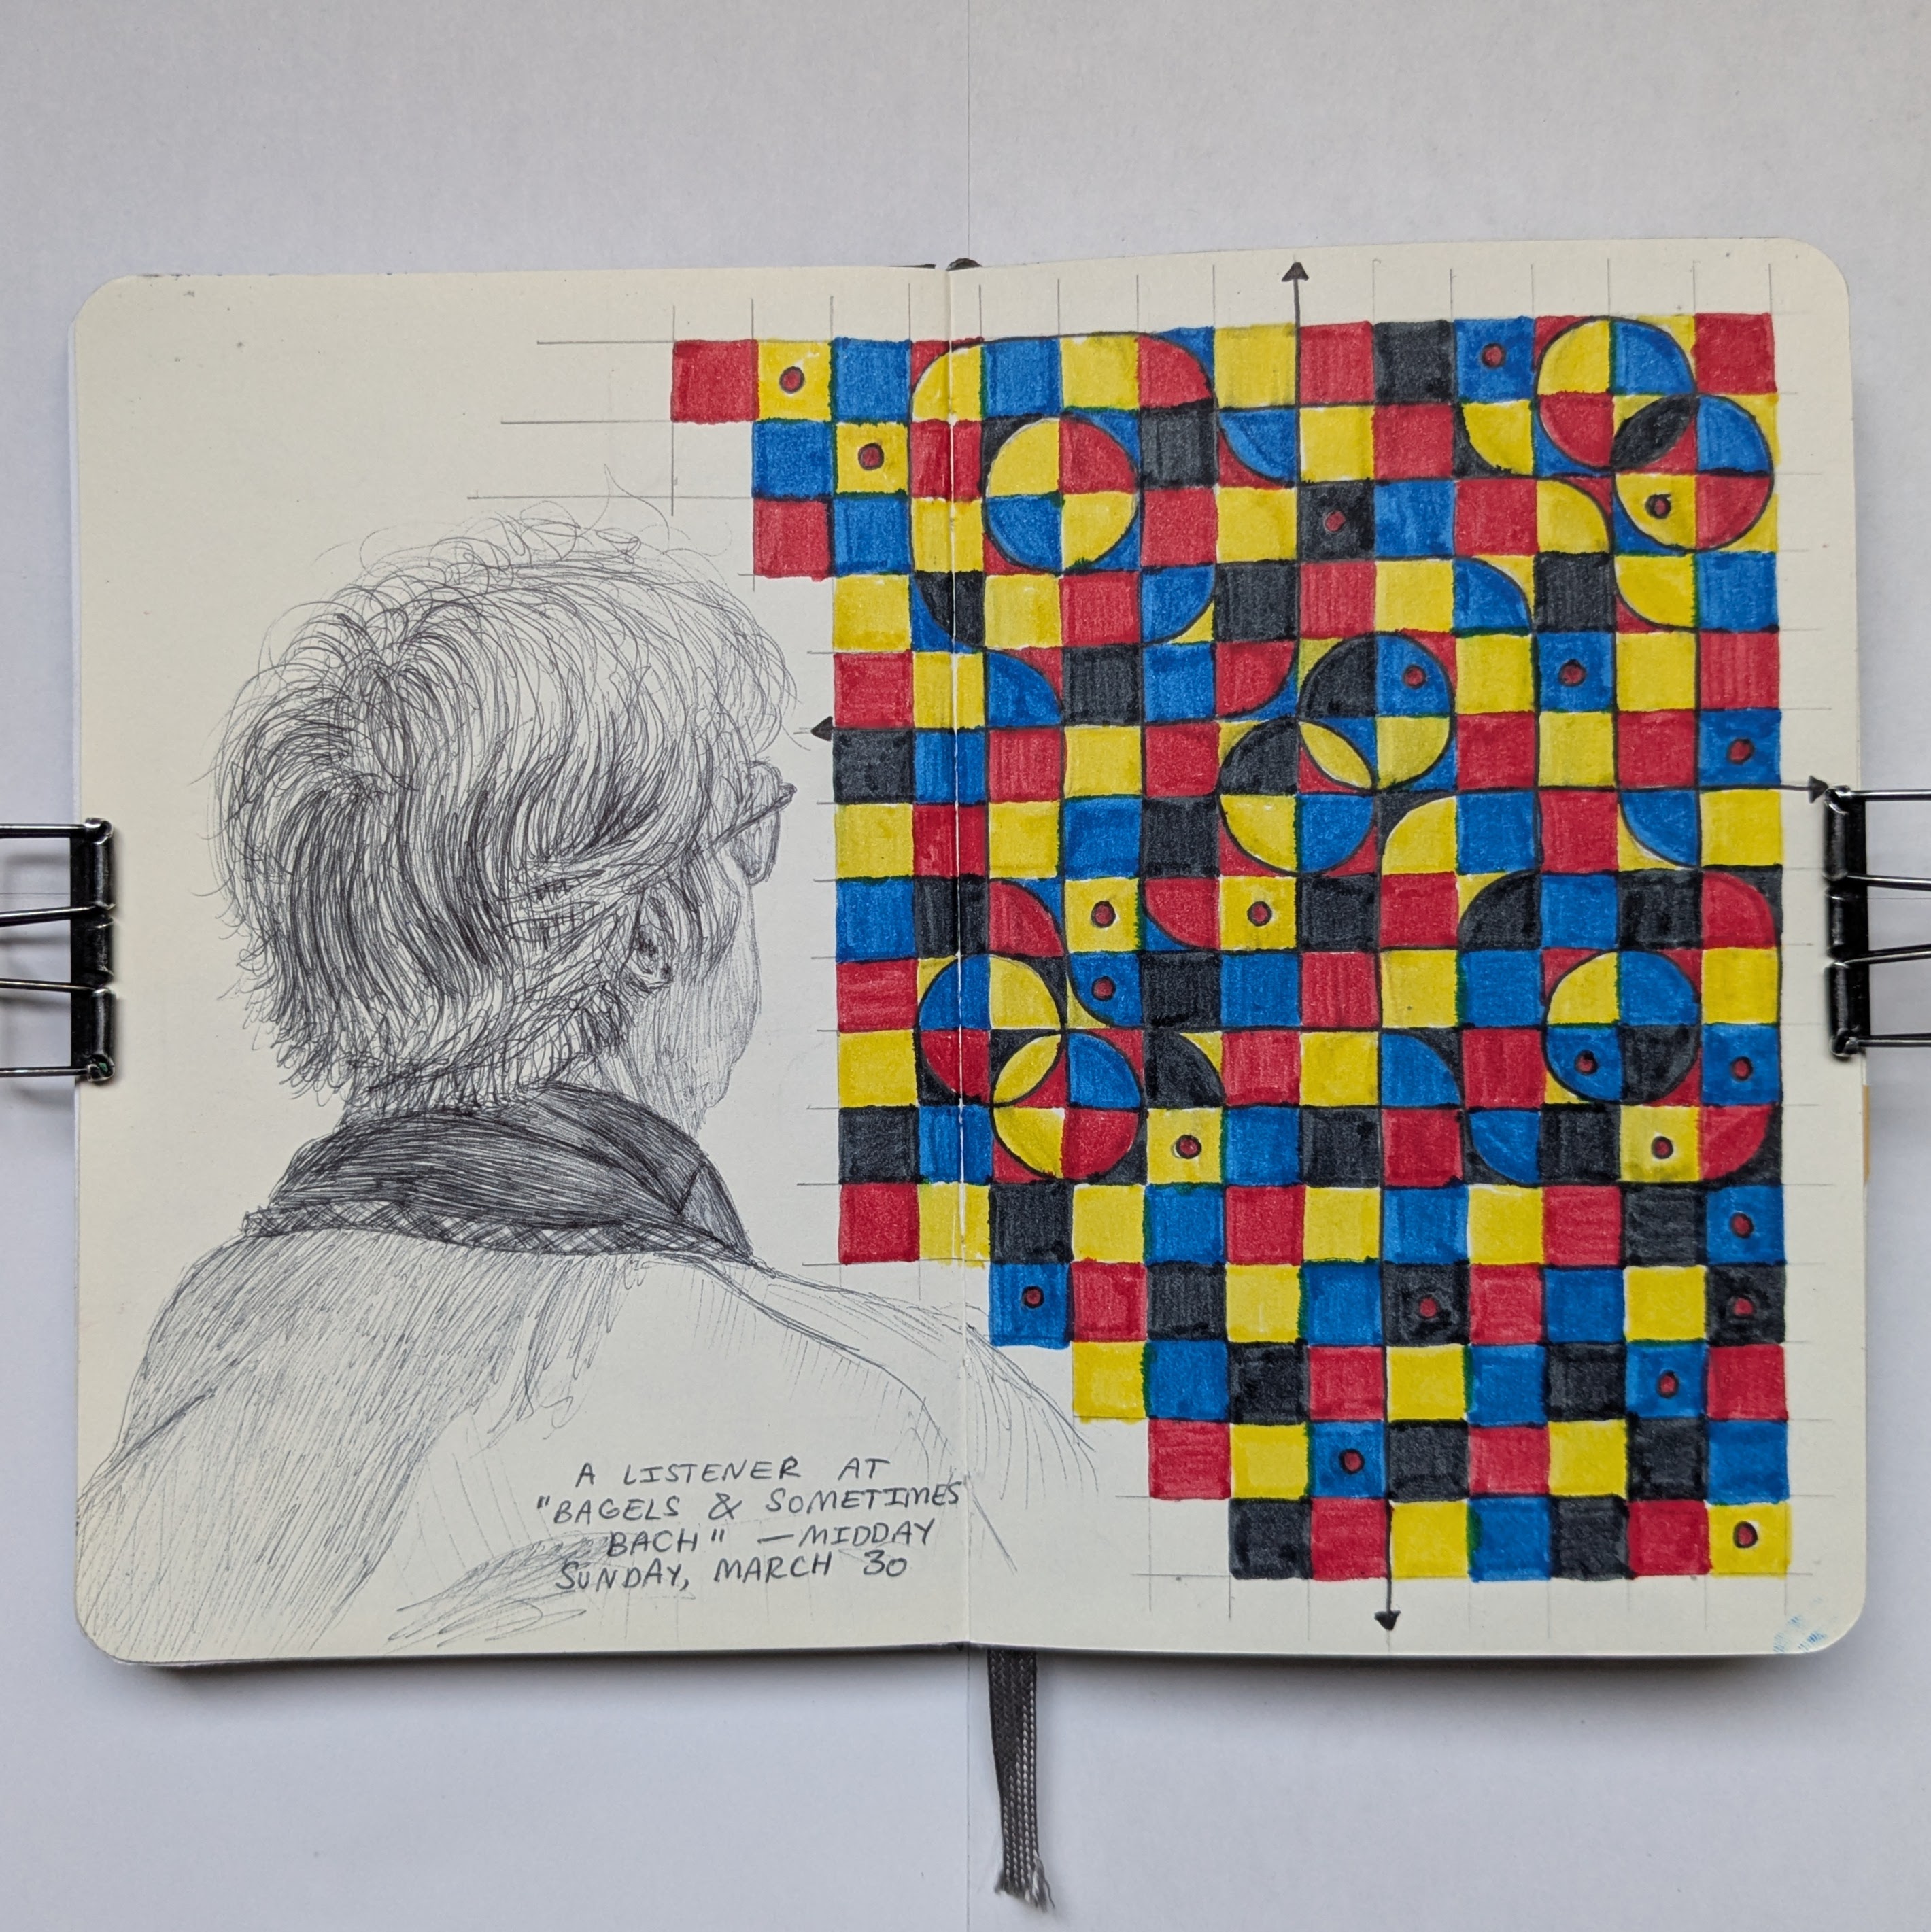 A LISTENER AT
"BAGELS & SOMETIMES
BACH" — MIDDAY
SUNDAY, MARCH 30